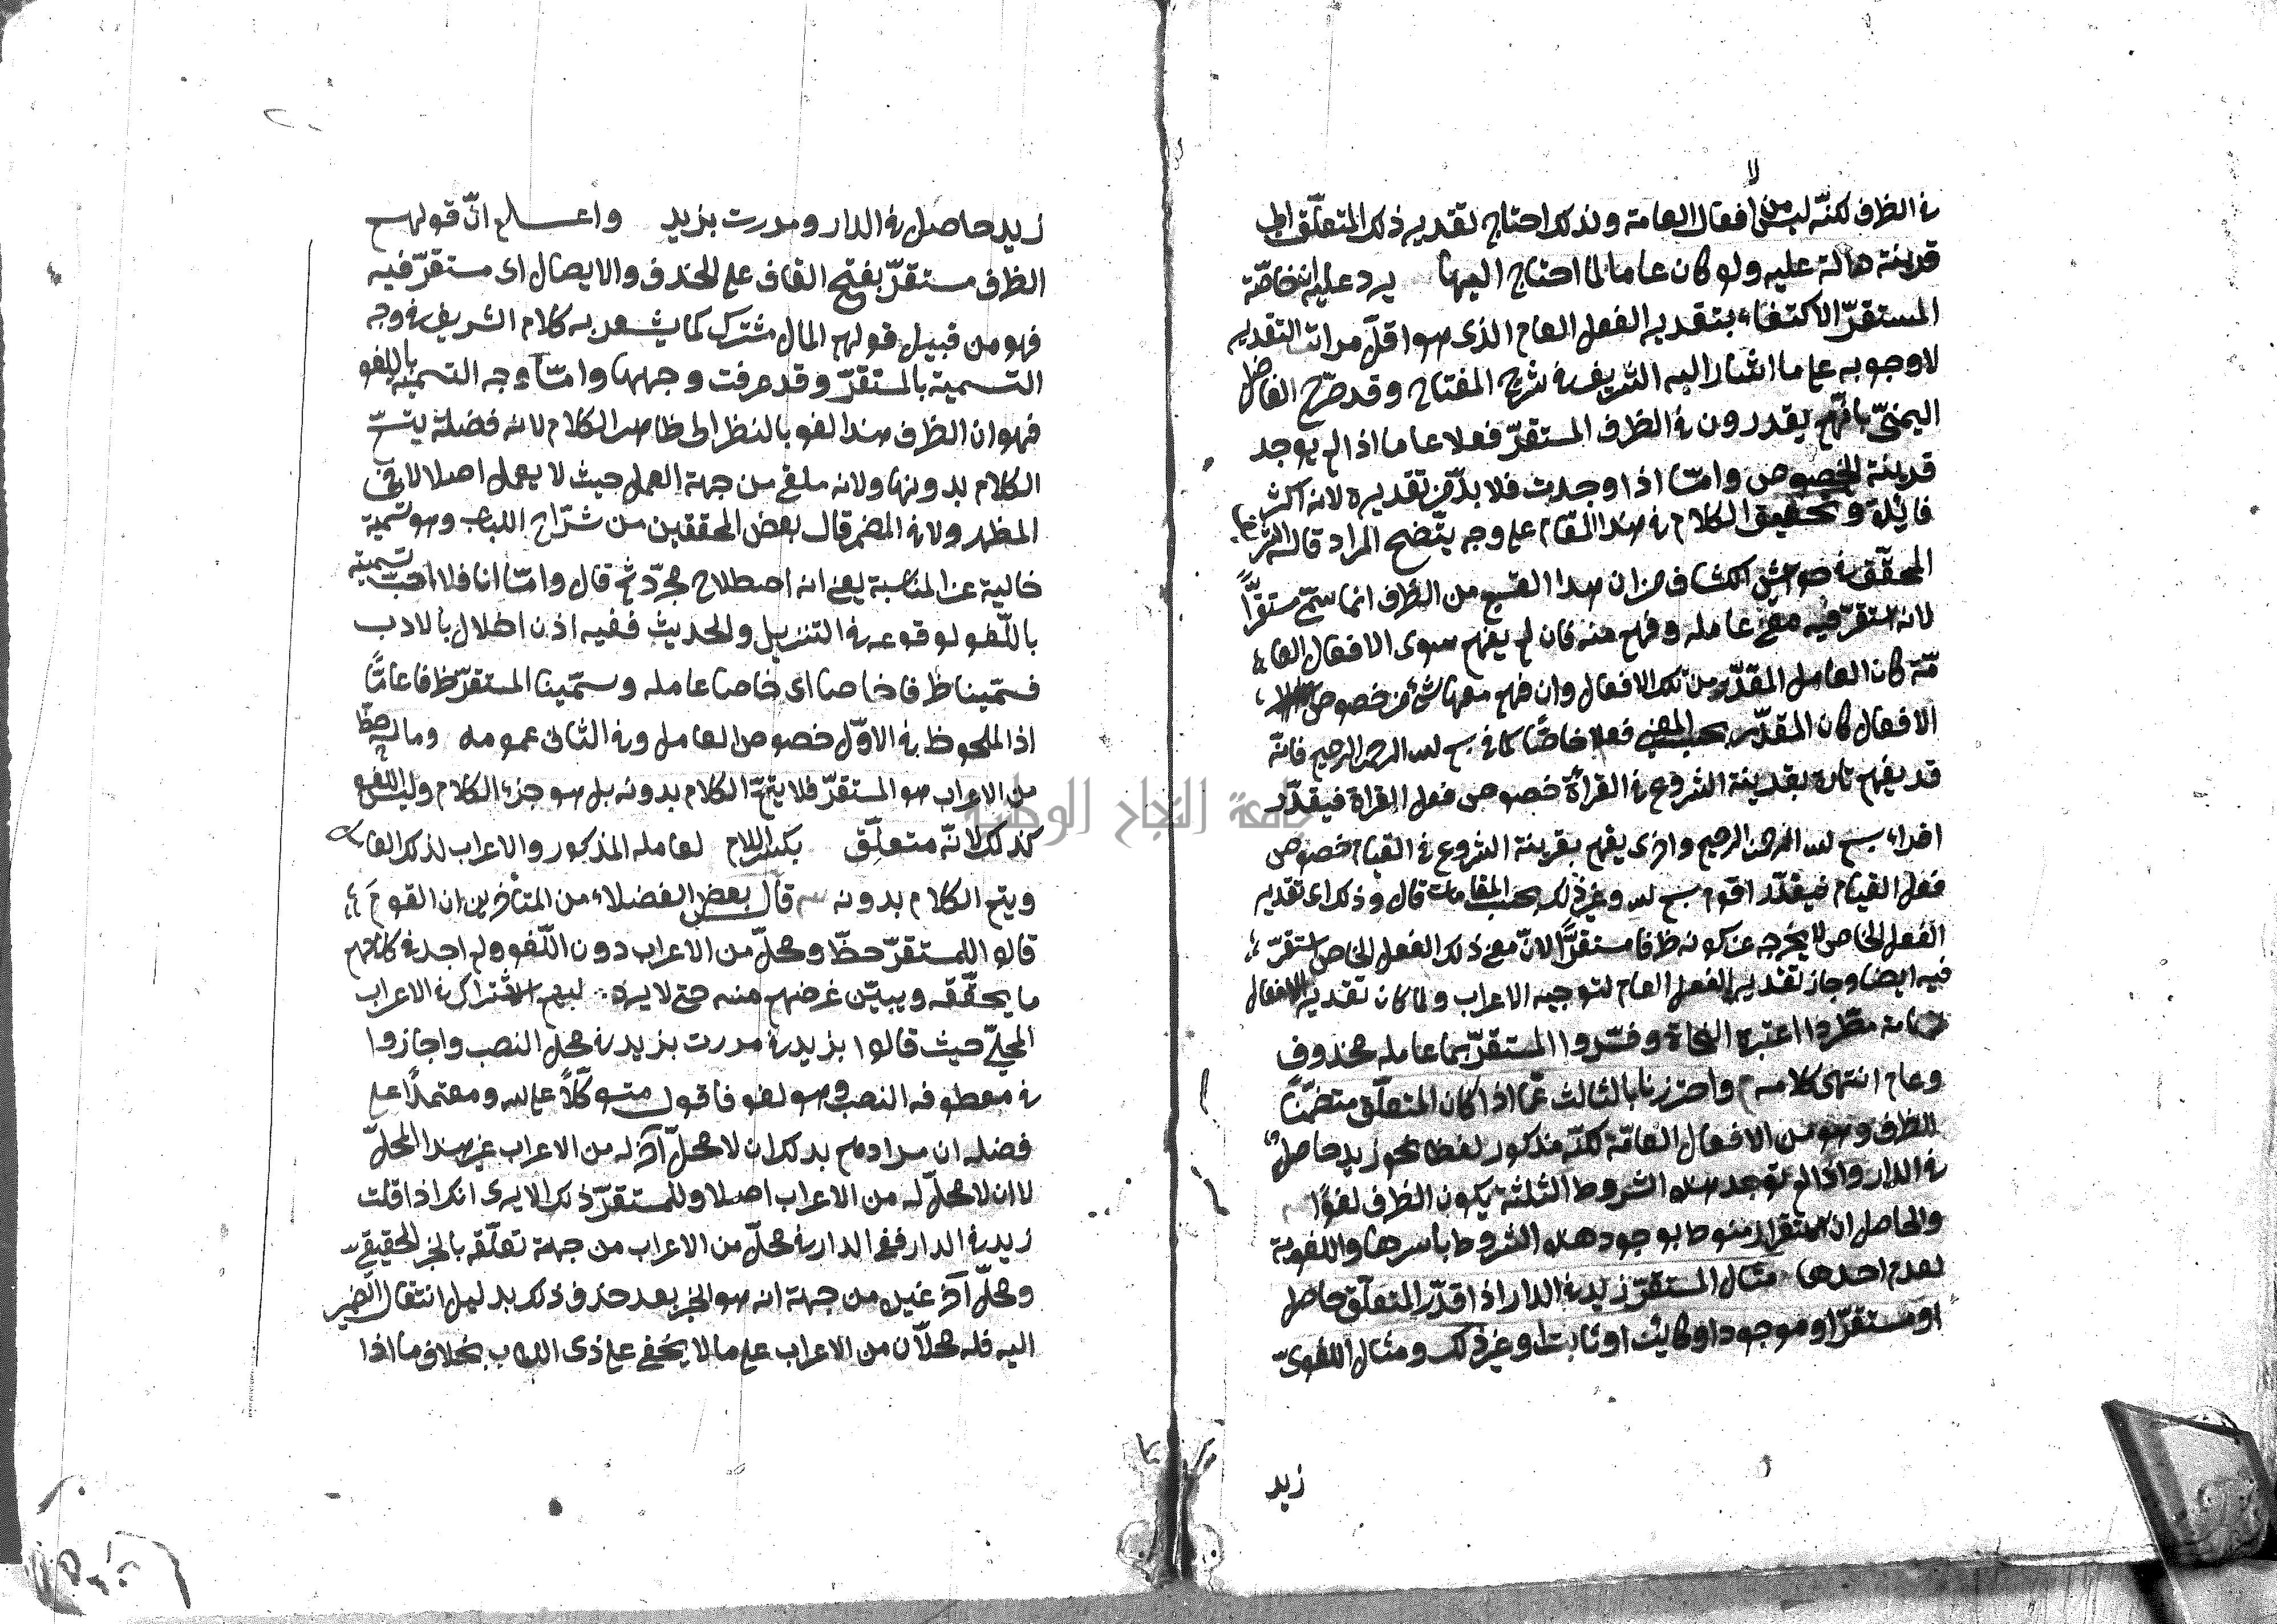 لا
في الظرف لكنه ليس من افعال العامة ولذلك احتاج تقدير ذلك المتعلق الى
قرينة دالة عليه ولو كان عاما لما احتاج اليها يرد عليه ان خاصّة
المستقرّ الاكتفاء بتقدير الفعل العام الذى هو اقلّ مراتب التقدير
لا وجوبه على ما اشار اليه الشريف في شرح المفتاح وقد صرّح الفاضل
اليمنىّ بانّهم يقدرون في الظرف المستقرّ فعلا عاما اذا لم يوجد
قرينة الخصوص وامّا اذا وجدت فلا بدّ من تقديره لانه اكثر
فائدة وتحقيق الكلام في هذا المقام على وجه يتّضح المراد قال الشريف
المحقّق في حواشى الكشاف من ان هذا القسم من الظرف انما سمّى مستقرّاً
لانه استقرّ فيه معنى عامله وفهم منه فان لم يفهم سوى الافعال العا
مّة كان العامل المقدّر من تلك الافعال وان فهم معها شئ من خصوص
الافعال كان المقدّر بحسب المعنى فعلا خاصّا كما في بسم الله الرحمن الرحيم فانّه
قد يفهم تارة بقرينة الشروع في القراءة خصوص فعل القراة فيقدّر
اقراء بسم الله الرحمن الرحيم واخرى يفهم بقرينة الشروع في القيام خصوص
فعل القيام فيقدّر اقوم بسم الله وغير ذلك بحسب المقامات قال وذلك اى تقدير
الفعل الخاص لا يخرجه عن كونه ظرفا مستقرّاً لانّ معنى ذلك الفعل الخاص استقرّ
فيه ايضا وجاز تقدير الفعل العام لتوجيه الاعراب ولما كان تقدير الافعال
العامة مطّردا اعتبره النحاة وفسّروا المستقرّ بما عامله محذوف
وعام انتهى كلامه واحترزنا بالثالث عمّا اذا كان المتعلّق متضمّناً
للظرف وهو من الافعال العامّة لكنّه مذكور لفظا نحو زيد حاصل
في الدار واذا لم توجد هذه الشروط الثلثة يكون الظرف لغوًا
والحاصل ان المستقرّ منوط بوجود هذه الشروط باسرها واللغوية
لعدم احدها مثال المستقرّ زيد في الدار اذا قدّر المتعلّق حاصل
او مستقرّ او موجود او كائن او ثابت وغير ذلك ومثال اللغوىّ
زيد
زيد حاصل في الدار ومررت بزيد واعلم انّ قولهم
الظرف مستقرّ بفتح القاف على الحذف والايصال اى مستقرّ فيه
فهو من قبيل قولهم المال مشترك كما يشعر به كلام الشريف في وجه
التسمية بالمستقرّ وقد عرفت وجهها وامّا وجه التسمية باللغو
فهو ان الظرف هذا لغو بالنظر الى ظاهر الكلام لانه فضلة يتمّ
الكلام بدونها ولانه ملغى من جهة العمل حيث لا يعمل اصلا لا في
المظهر ولا في المضمر قال بعض المحققين من شرّاح اللباب وهو تسمية
خالية عن المناسبة يعنى انه اصطلاح مجرّد ثم قال وامّا انا فلا احبّ تسميته
باللّغو لوقوعه في التنزيل والحديث ففيه اذن اخلال بالادب
فسمّينا ظرفا خاصا اى خاصا عامله وسمّينا المستقرّ ظرفا عامّاً
اذ الملحوظ في الاوّل خصوص العامل وفي الثانى عمومه وماله حظّ
من الاعراب هو المستقرّ فلا يتمّ الكلام بدونه بل هو جزء الكلام وليس اللغو
كذلك لانّه متعلّق بكسر اللام لعامله المذكور والاعراب لذلك العامل
ويتم الكلام بدونه قال بعض الفضلاء من المتأخرين ان القوم
قالوا للمستقرّ حظّ ومحلّ من الاعراب دون اللّغو ولم اجد في كلامهم
ما يحقّقه ويبيّن غرضهم منه حتى لا يرد لهم الاشتراك في الاعراب
المحلّى حيث قالوا بزيد في مررت بزيد في محل النصب واجازوا
في معطوفه النصب وهو لغو فاقول متوكّلاً على الله ومعتمداً على
فضله ان مرادهم بذلك ان لا محلّ آخر له من الاعراب غير هذا المحلّ
لا ان لا محلّ له من الاعراب اصلا وللمستقرّ ذلك الا يرى انك اذا قلت
زيد في الدار ففى الدار في محلّ من الاعراب من جهة تعلّقه بالخبر الحقيقى
ومحلّ آخر غيره من جهة انه هو الخبر بعد حذف ذلك بدليل انتقال الضمير
اليه فله محلّان من الاعراب على ما لا يخفى على ذى الالباب بخلاف ما اذا
جامعة النجاح الوطنية